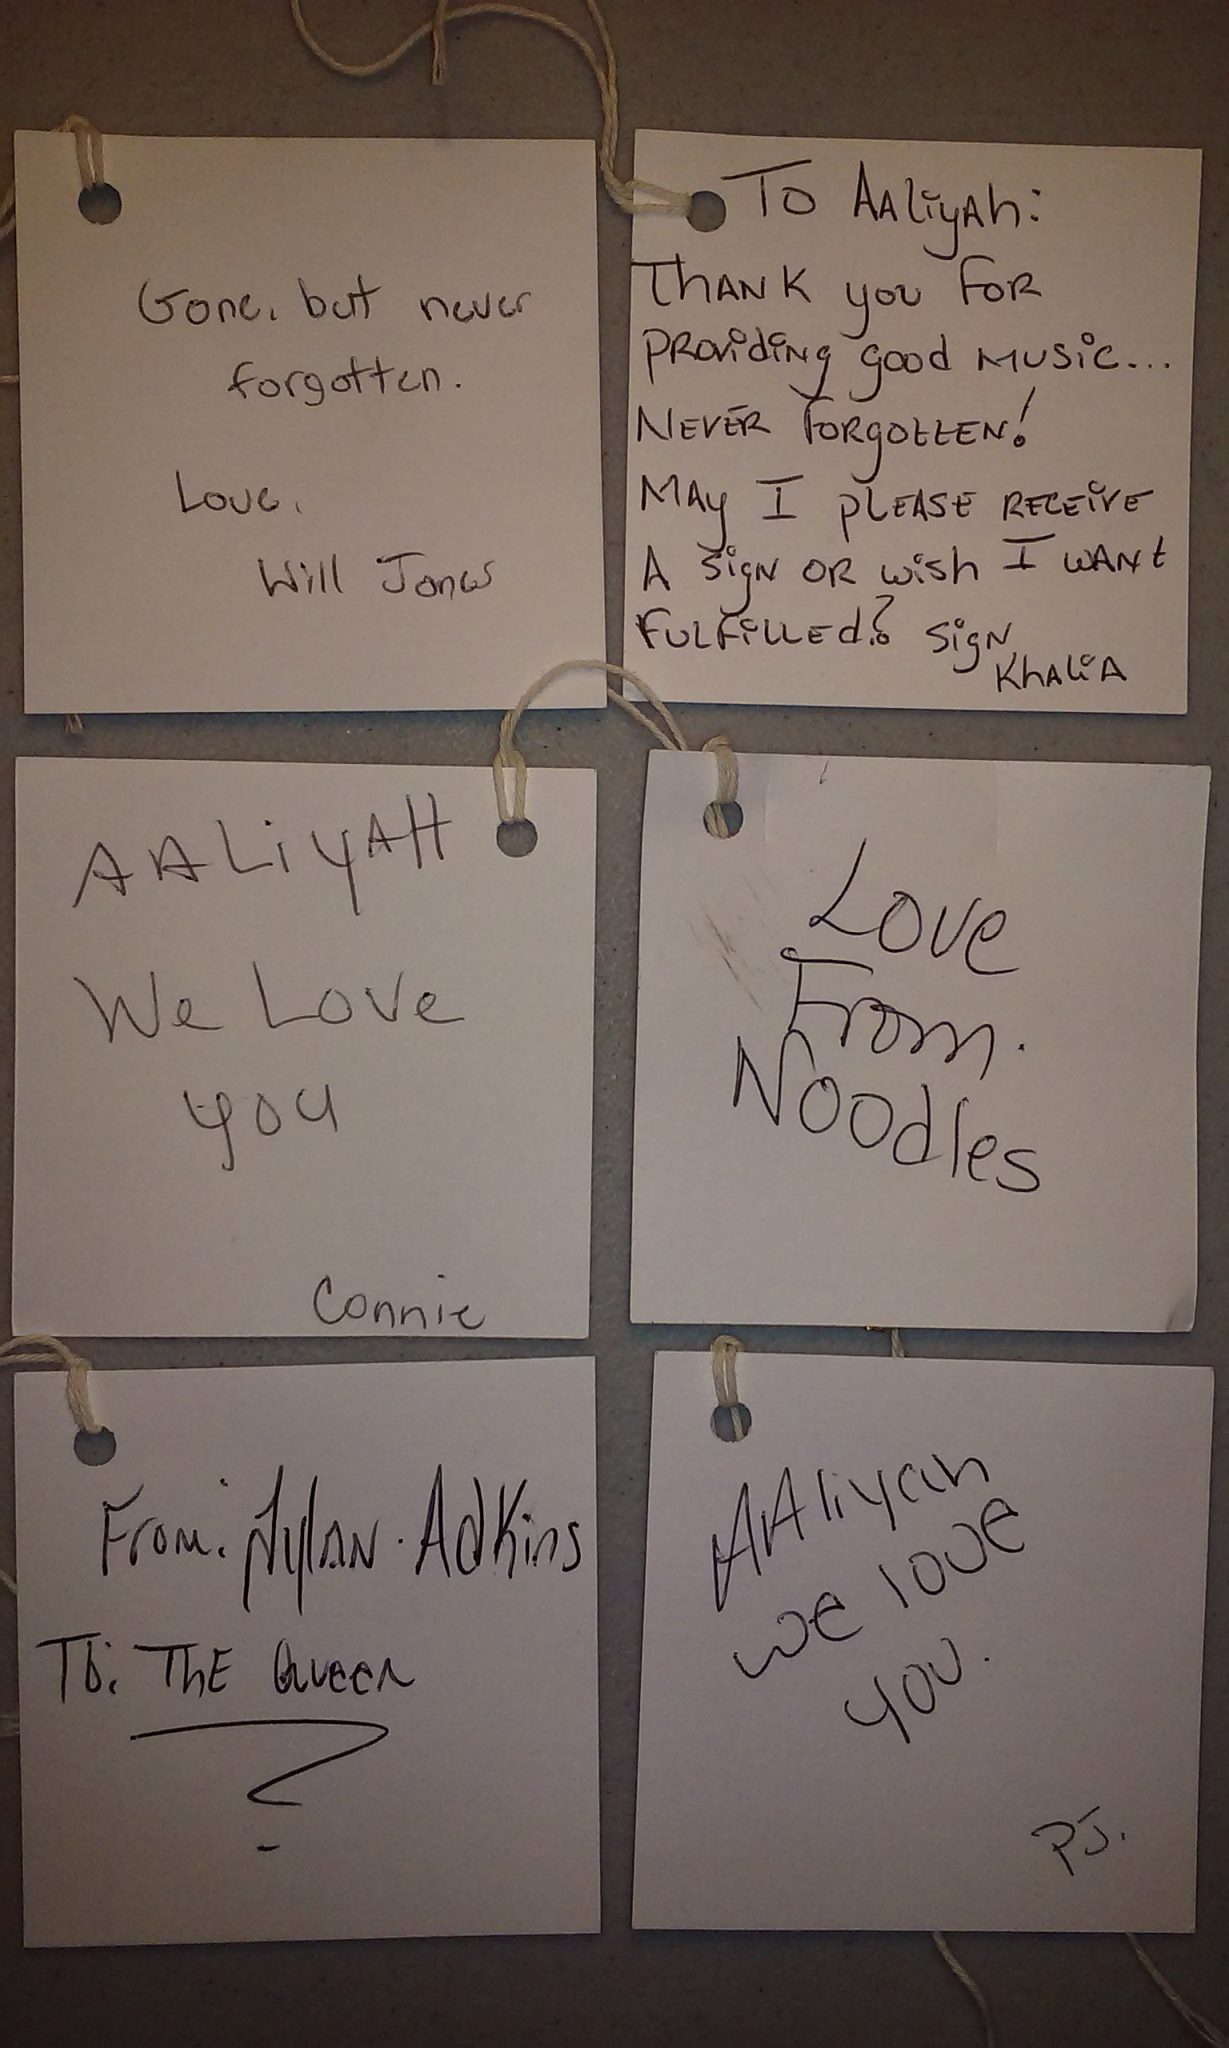 Gone, but never
forgotten.
Love,
Will Jones
To AAliyah:
Thank you for
providing good music...
Never forgotten!
May I please receive
a sign or wish I want
fulfilled? sign
Khalia
AALiyAH
We Love
you
Connie
Love
From.
Noodles
From: Dylan. Adkins
To: The Queen
AAliyah
we love
you.
PJ.